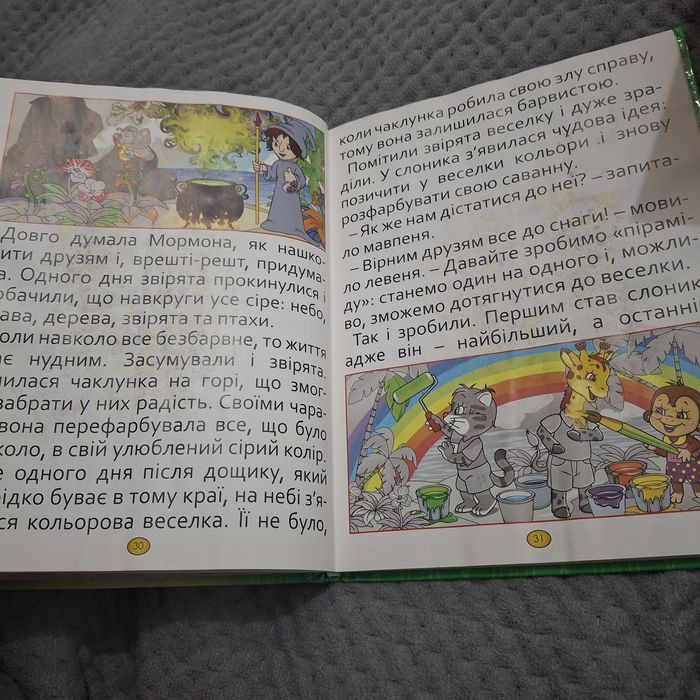 Довго думала Мормона, як нашко-
ити друзям і, врешті-решт, придума-
а. Одного дня звірята прокинулися і
обачили, що навкруги усе сіре: небо,
ава, дерева, звірята та птахи.
оли навколо все безбарвне, то життя
ає нудним. Засумували і звірята.
илася чаклунка на горі, що змог-
забрати у них радість. Своїми чара-
вона перефарбувала все, що було
коло, в свій улюблений сірий колір.
е одного дня після дощику, який
ідко буває в тому краї, на небі з'я-
ся кольорова веселка. Її не було,
30
коли чаклунка робила свою злу справу,
тому вона залишилася барвистою.
Помітили звірята веселку і дуже зра-
діли. У слоника з'явилася чудова ідея:
позичити у веселки кольори і знову
розфарбувати свою саванну.
– Як же нам дістатися до неї? – запита-
ло мавпеня.
– Вірним друзям все до снаги! – мови-
ло левеня. – Давайте зробимо «пірамі-
ду»: станемо один на одного і, можли-
во, зможемо дотягнутися до веселки.
Так і зробили. Першим став слоник
адже він – найбільший, а останні
31